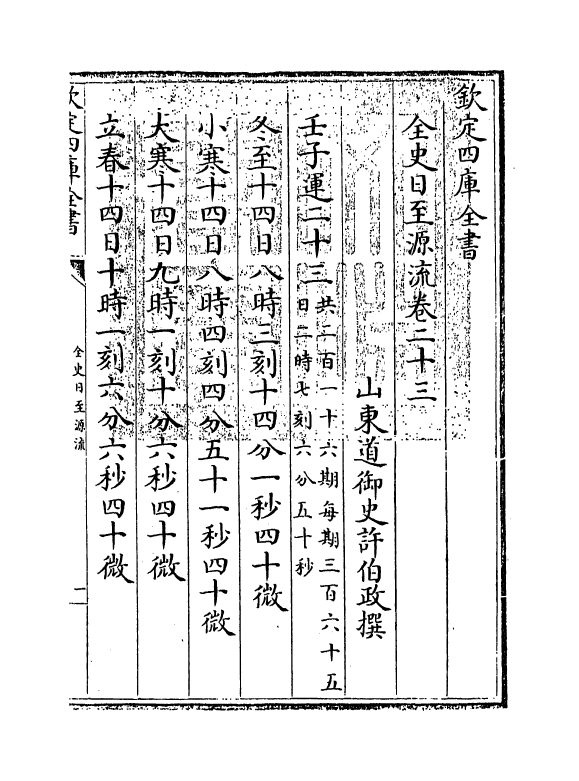 欽定四庫全書
全史日至源流卷二十三
山東道御史許伯政撰
壬子運二十三共二百一十六期每期三百六十五
日二時七刻六分五十秒
冬至十四日八時三刻十四分一秒四十微
小寒十四日八時四刻四分五十一秒四十微
大寒十四日九時一刻十分六秒四十微
立春十四日十時一刻六分六秒四十微
欽定四庫全書
全史日至源流